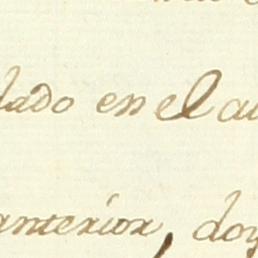 dado en el au
anterior, doy